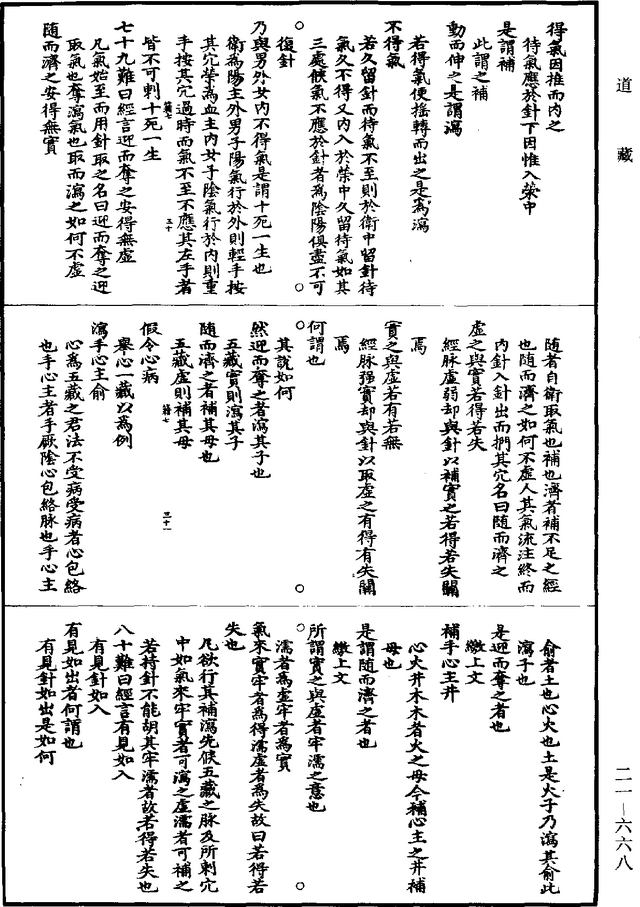 道藏
得氣因推而內之
待氣應於針下因惟入榮中
是謂補
此謂之補
動而伸之是謂瀉
若得氣便搖轉而出之是為瀉
不得氣
若久留針而待氣不至則於衛中留針待
氣久不得又內入於榮中久留待氣如其
三處候氣不應於針者為陰陽俱盡不可
復針
乃與男外女內不得氣是謂十死一生也
衛為陽主外男子陽氣行於外則輕手按
其穴榮為血主內女子陰氣行於內則重
手按其穴過時而氣不至不應其左手者
皆不可刺十死一生
七十九難曰經言迎而奪之安得無虛
凡氣始至而用針取之名曰迎而奪之迎
取氣也奪瀉氣也取而瀉之如何不虛
隨而濟之安得無實
隨者自衛取氣也補也濟者補不足之經
也隨而濟之如何不虛人其氣流注終而
內針入針出而捫其穴名曰隨而濟之
虛之與實若得若失
經脉虛弱却與針以補實之若得若失關
焉
實之與虛若有若無
經脉强實却與針以取虛之有得有失關
焉
何謂也
其說如何
然迎而奪之者瀉其子也
五藏實則瀉其子
隨而濟之者補其母也
五藏虛則補其母
假令心病
舉心一藏以為例
瀉手心主俞
心為五藏之君法不受病受病者心包絡
也手心主者手厥陰心包絡脉也手心主
俞者土也心火也土是火子乃瀉其俞此
瀉子也
是迎而奪之者也
繳上文
補手心主井
心火井木木者火之母今補心主之井補
母也
是謂隨而濟之者也
繳上文
所謂實之與虛者牢濡之意也
濡者為虛牢者為實
氣來實牢者為得濡虛者為失故曰若得若
失也
凡欲行其補瀉先候五藏之脉及所刺穴
中如氣來牢實者可瀉之虛濡者可補之
若持針不能胡其牢濡者故若得若失也
八十難曰經言有見如入
有見針如入
有見如出者何謂也
有見針如出是如何
二一—六六八